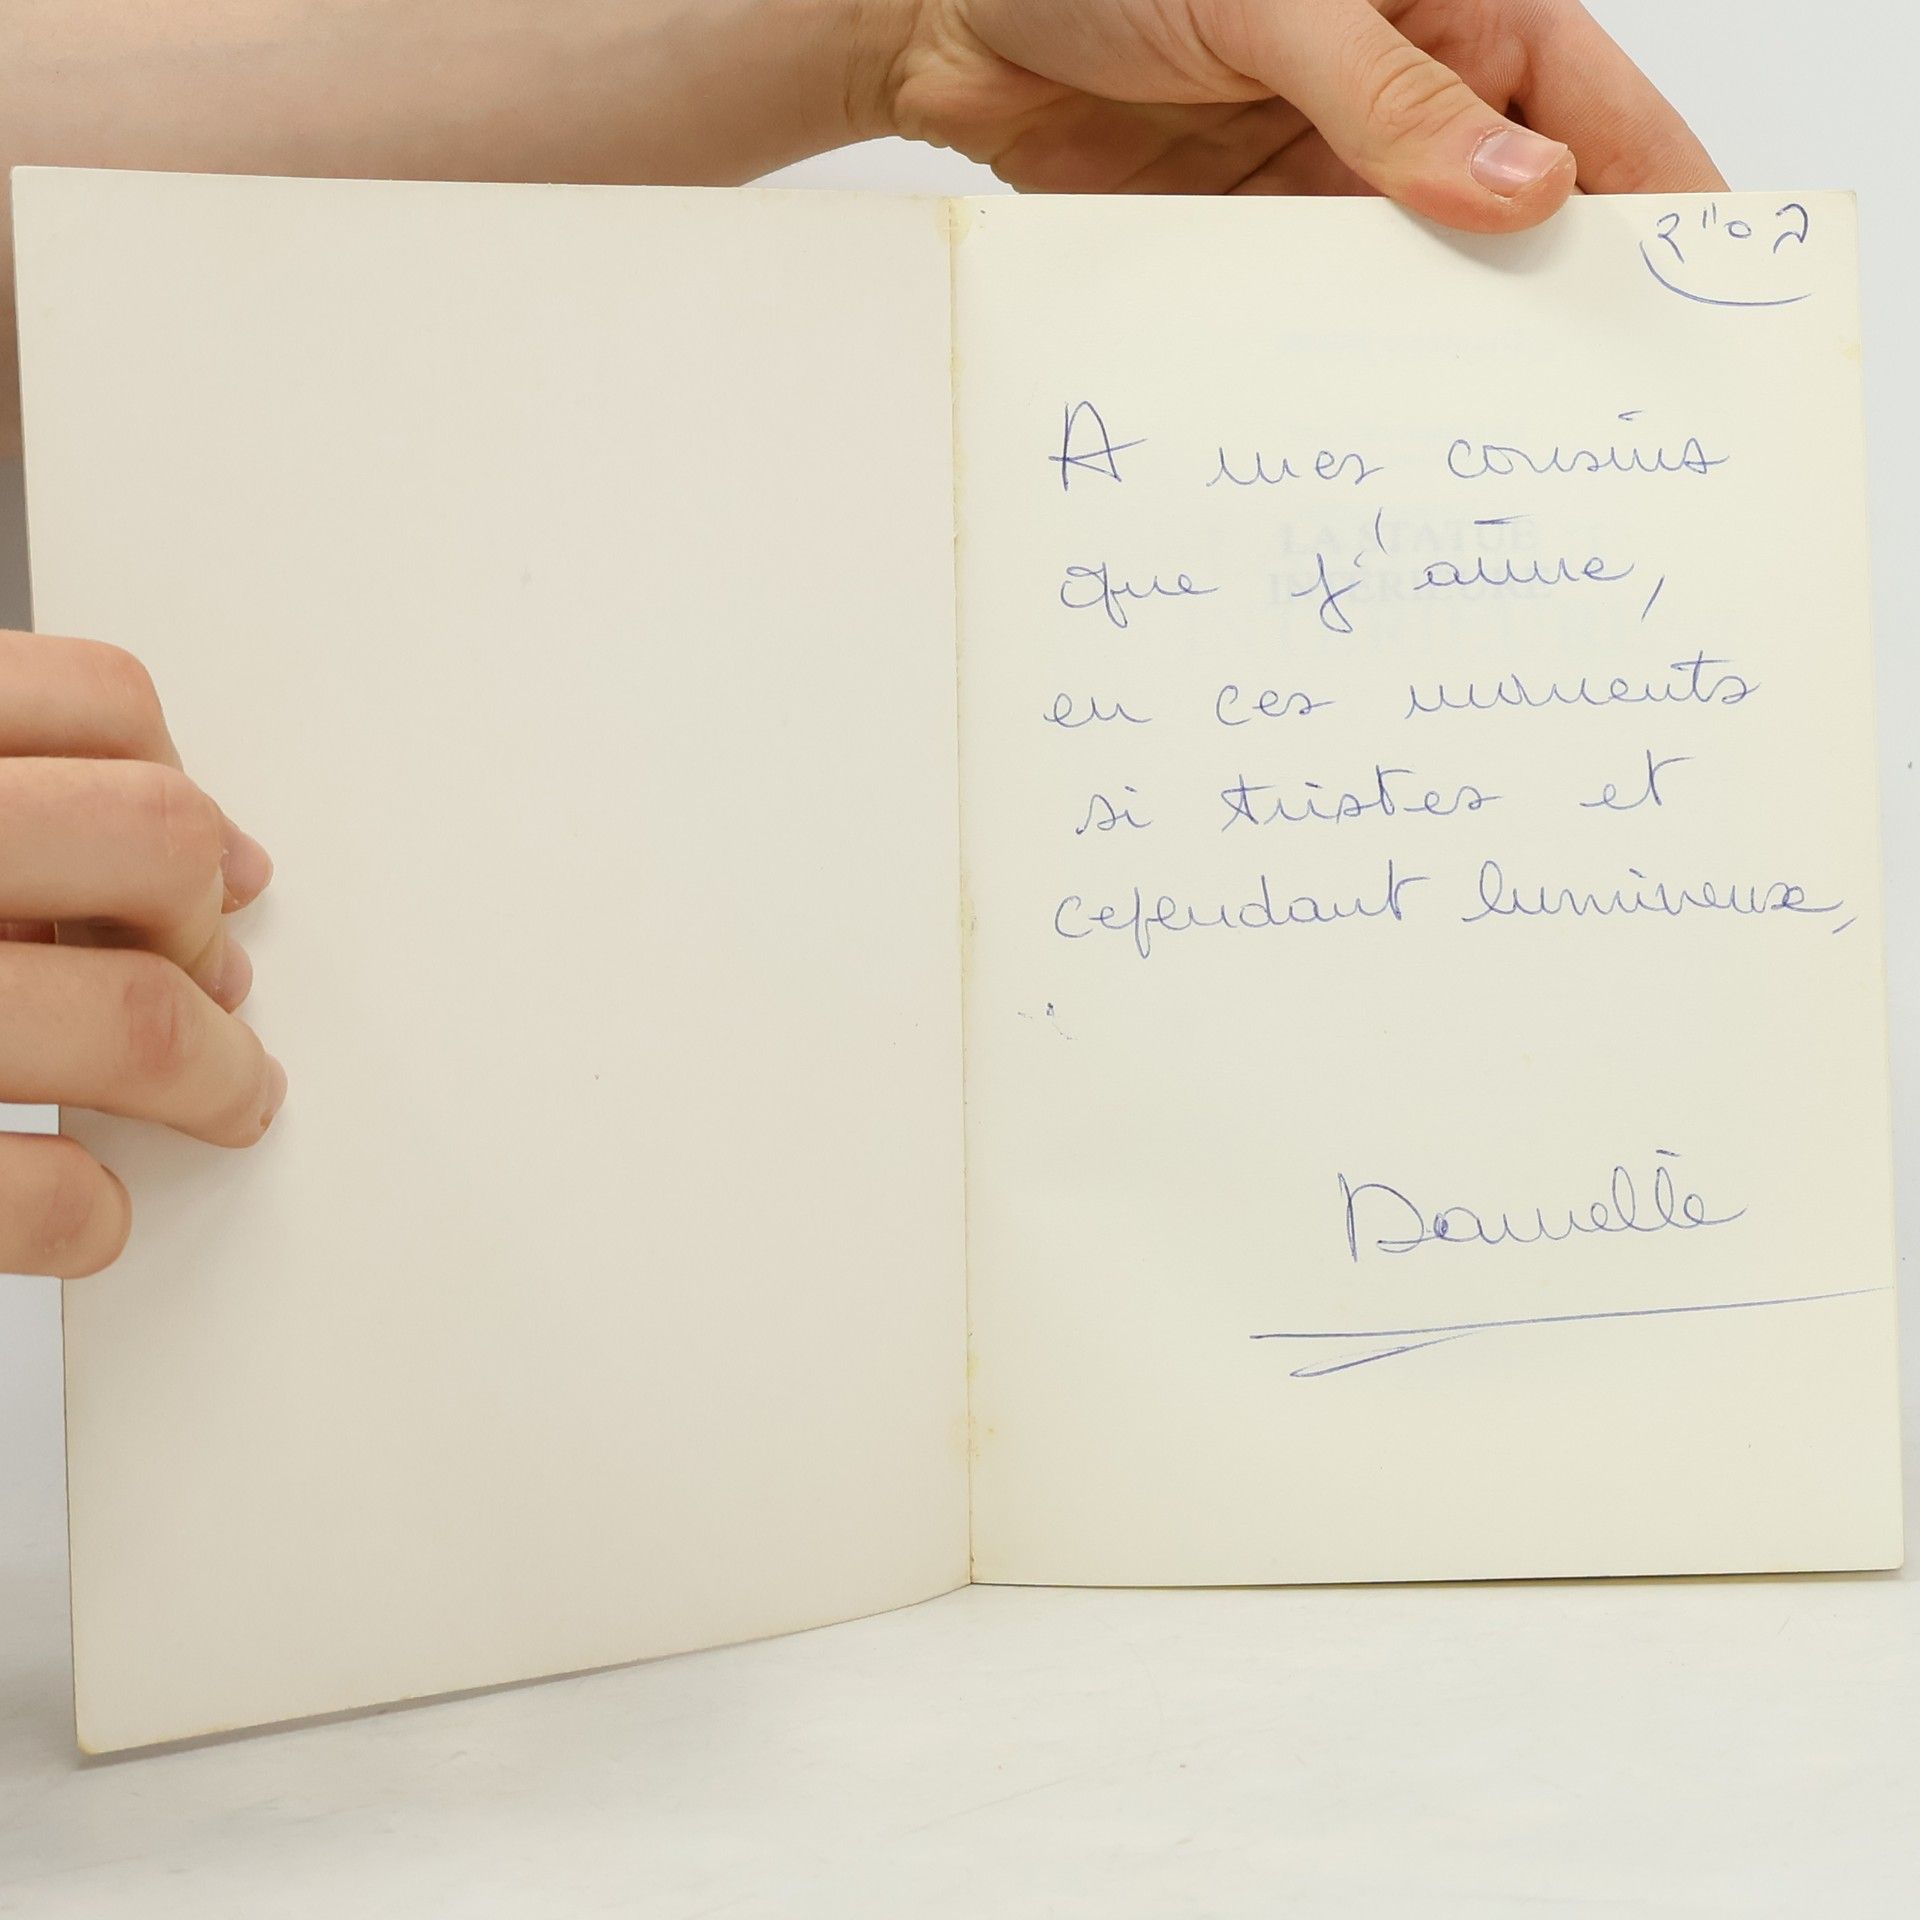 בס"ד
A mes cousins
que j'aime,
LA STATUE
INTERIEURE
en ces moments
si tristes et
cependant lumineux,
Danielle